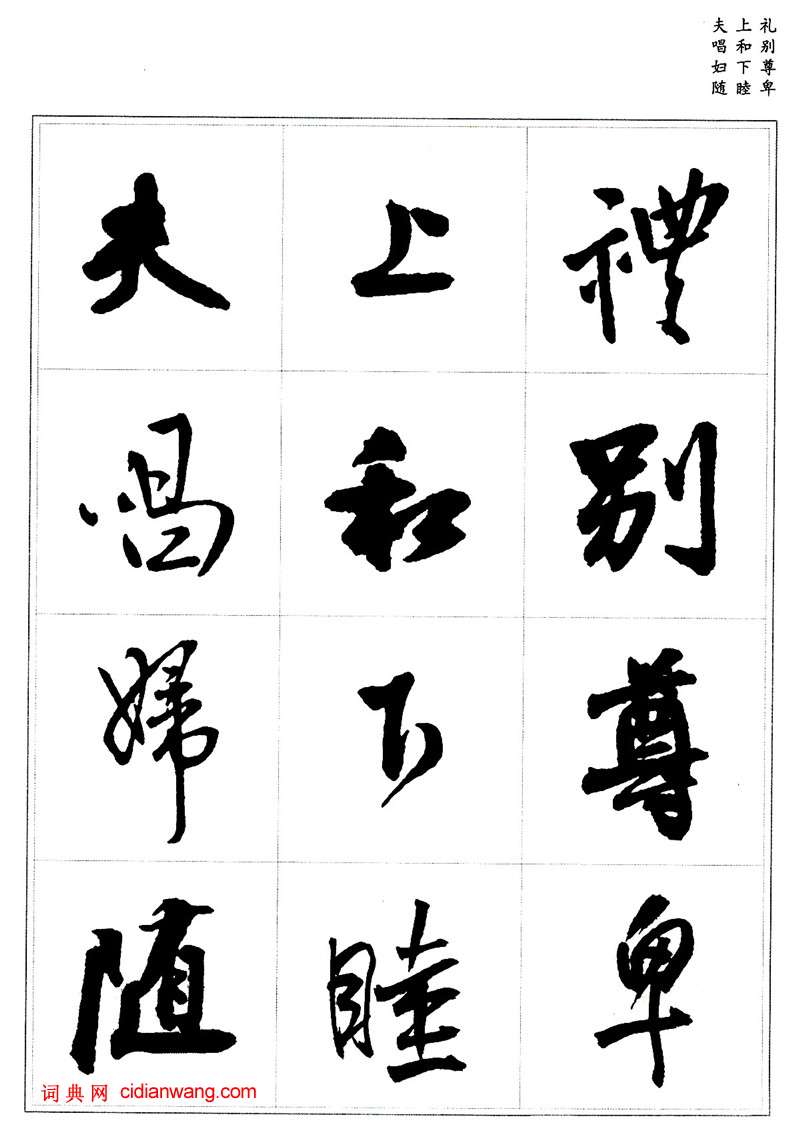 礼别尊卑
上和下睦
夫唱妇随
禮别尊卑
上和下睦
夫唱婦随
词典网 cidianwang.com